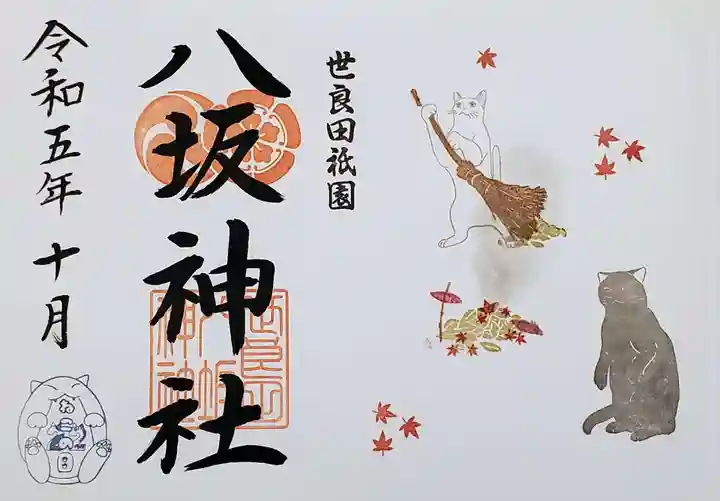 世良田祇園
八坂神社
令和五年 十月